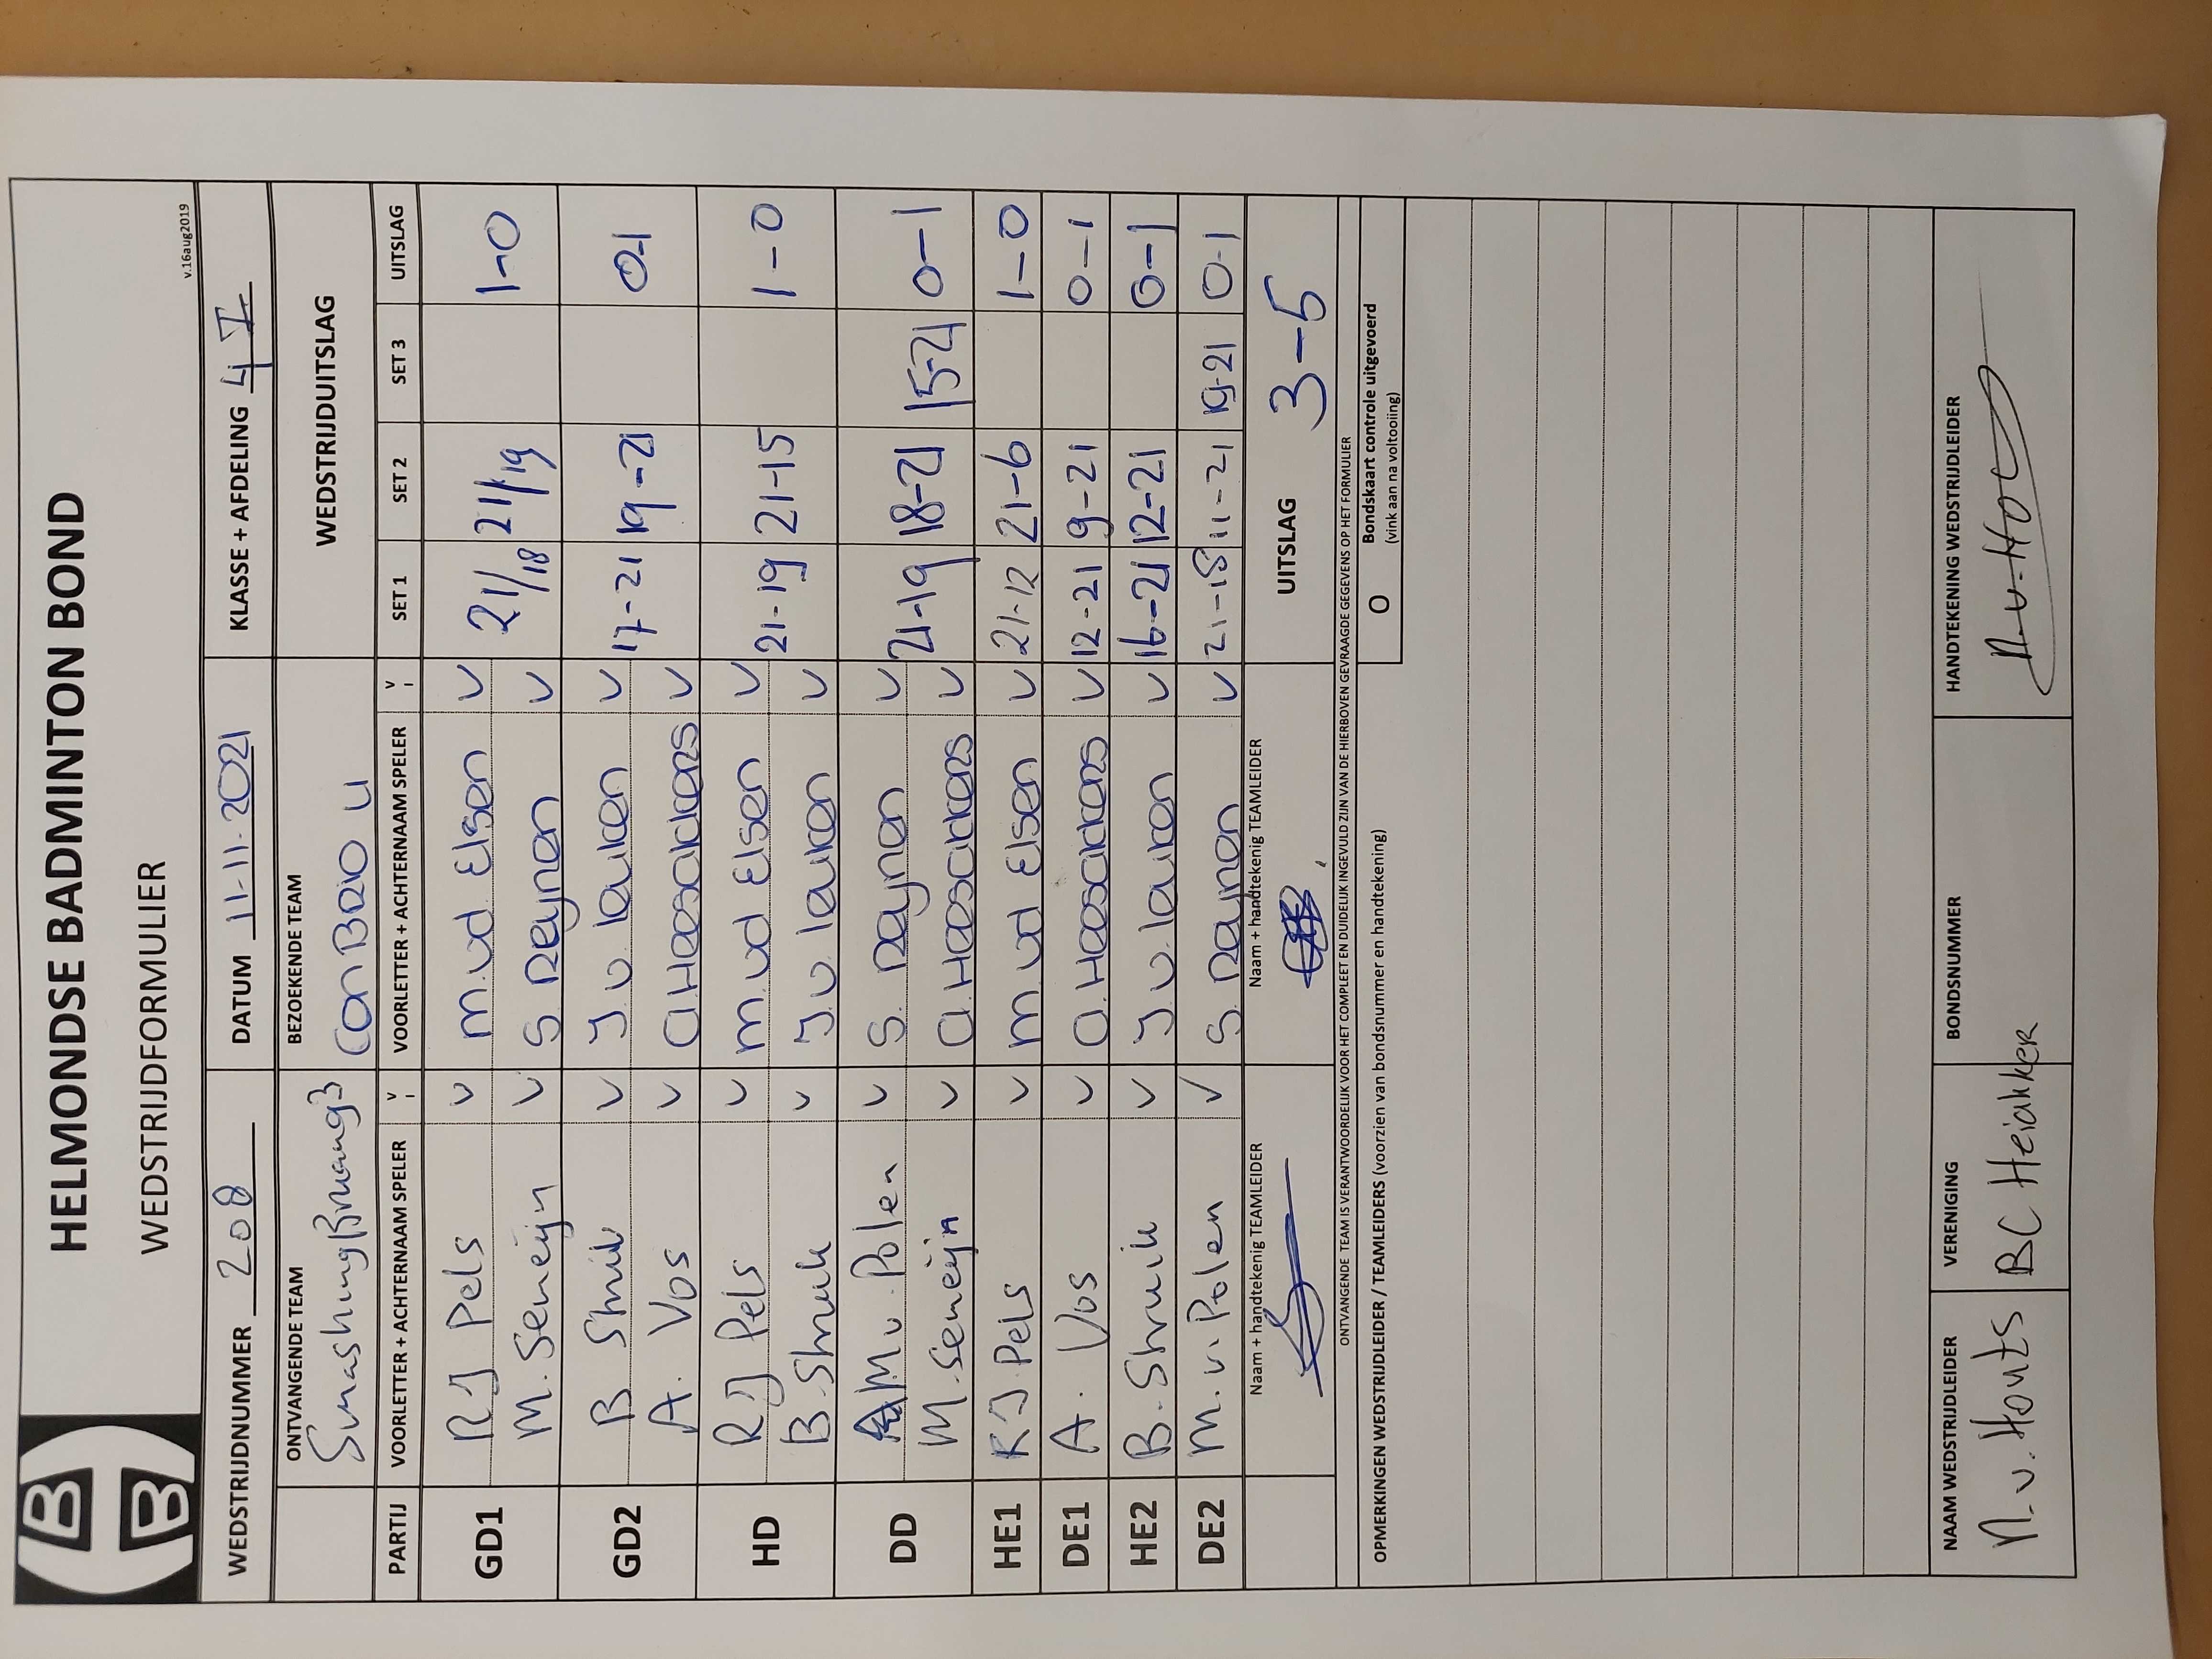 HELMONDSE BADMINTON BOND
WEDSTRIJDFORMULIER
v.16aug2019
WEDSTRIJDNUMMER 208 DATUM 11-11-2021 KLASSE + AFDELING 4 I
ONTVANGENDE TEAM BEZOEKENDE TEAM WEDSTRIJDUITSLAG
Con Brio 4
PARTIJ VOORLETTER + ACHTERNAAM SPELER V I VOORLETTER + ACHTERNAAM SPELER V I SET 1 SET 2 SET 3 UITSLAG
GD1 RJ Pels V M.vd Elsen V 21/18 21/19 1-0
M. Semeijn V S. Reijnen V
GD2 B Struik V J.v. Leuken V 17-21 19-21 0-1
A. Vos V A.Heesakkers V
HD RJ Pels V M.vd Elsen V 21-19 21-15 1-0
B. Struik V J.v. Leuken V
DD M v. Polen V S. Reijnen V 21-19 18-21 15-21 0-1
M. Semeijn V A.Heesakkers V
HE1 RJ Pels V M.vd Elsen V 21-12 21-6 1-0
DE1 A. Vos V A.Heesakkers V 12-21 9-21 0-1
HE2 B. Struik V J.v. Leuken V 16-21 12-21 0-1
DE2 M. v. Polen V S. Reijnen V 21-18 11-21 19-21 0-1
Naam + handtekenig TEAMLEIDER Naam + handtekenig TEAMLEIDER UITSLAG 3-5
ONTVANGENDE TEAM IS VERANTWOORDELIJK VOOR HET COMPLEET EN DUIDELIJK INGEVULD ZIJN VAN DE HIERBOVEN GEVRAAGDE GEGEVENS OP HET FORMULIER
OPMERKINGEN WEDSTRIJDLEIDER / TEAMLEIDERS (voorzien van bondsnummer en handtekening)
O Bondskaart controle uitgevoerd
(vink aan na voltooiing)
NAAM WEDSTRIJDLEIDER VERENIGING BONDSNUMMER HANDTEKENING WEDSTRIJDLEIDER
N.v. Houts BC Heiakker